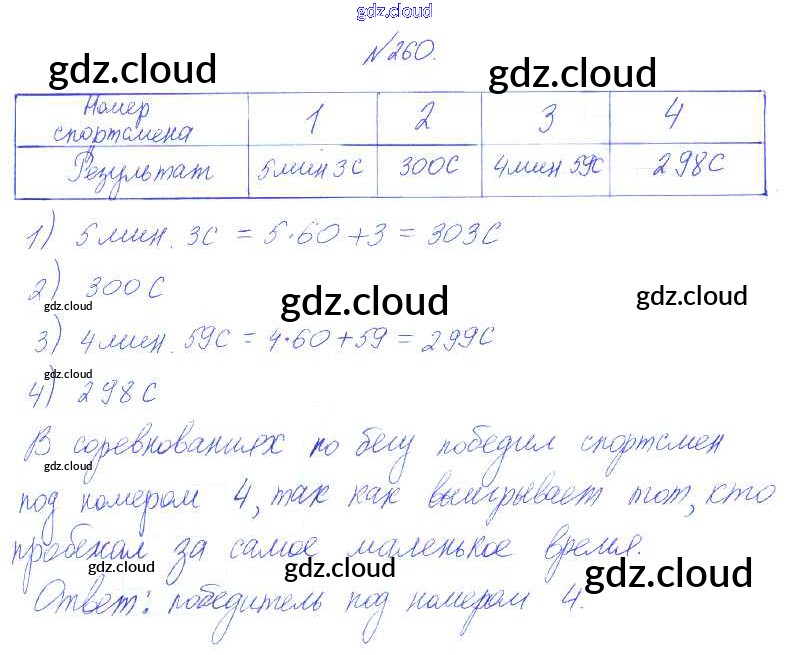 gdz.cloud
№260.
gdz.cloud gdz.cloud
Номер спортсмена 1 2 3 4
Результат 5мин 3с 300с 4мин 59с 298с
1) 5 мин. 3с = 5·60+3 = 303с
2) 300с
gdz.cloud gdz.cloud gdz.cloud
3) 4мин. 59с = 4·60+59 = 299с
gdz.cloud
4) 298с
В соревнованиях по бегу победил спортсмен
gdz.cloud
под номером 4, так как выигрывает тот, кто
пробежал за самое маленькое время.
gdz.cloud gdz.cloud gdz.cloud
Ответ: победитель под номером 4.